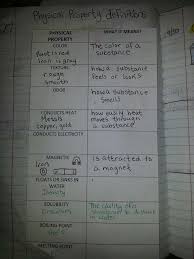 Physical Property definitions
PHYSICAL PROPERTY
WHAT IT MEANS?
COLOR
Rust is red
Iron is gray
The color of a substance
TEXTURE
rough
smooth
how a substance feels or looks
ODOR
how a substance smells
CONDUCTS HEAT
Metals
copper, gold
how easily heat moves through a substance
CONDUCTS ELECTRICITY
MAGNETIC
Iron
is attracted to a magnet
FLOATS OR SINKS IN WATER
Density
SOLUBILITY
The ability of a substance to dissolve in water
BOILING POINT
MELTING POINT